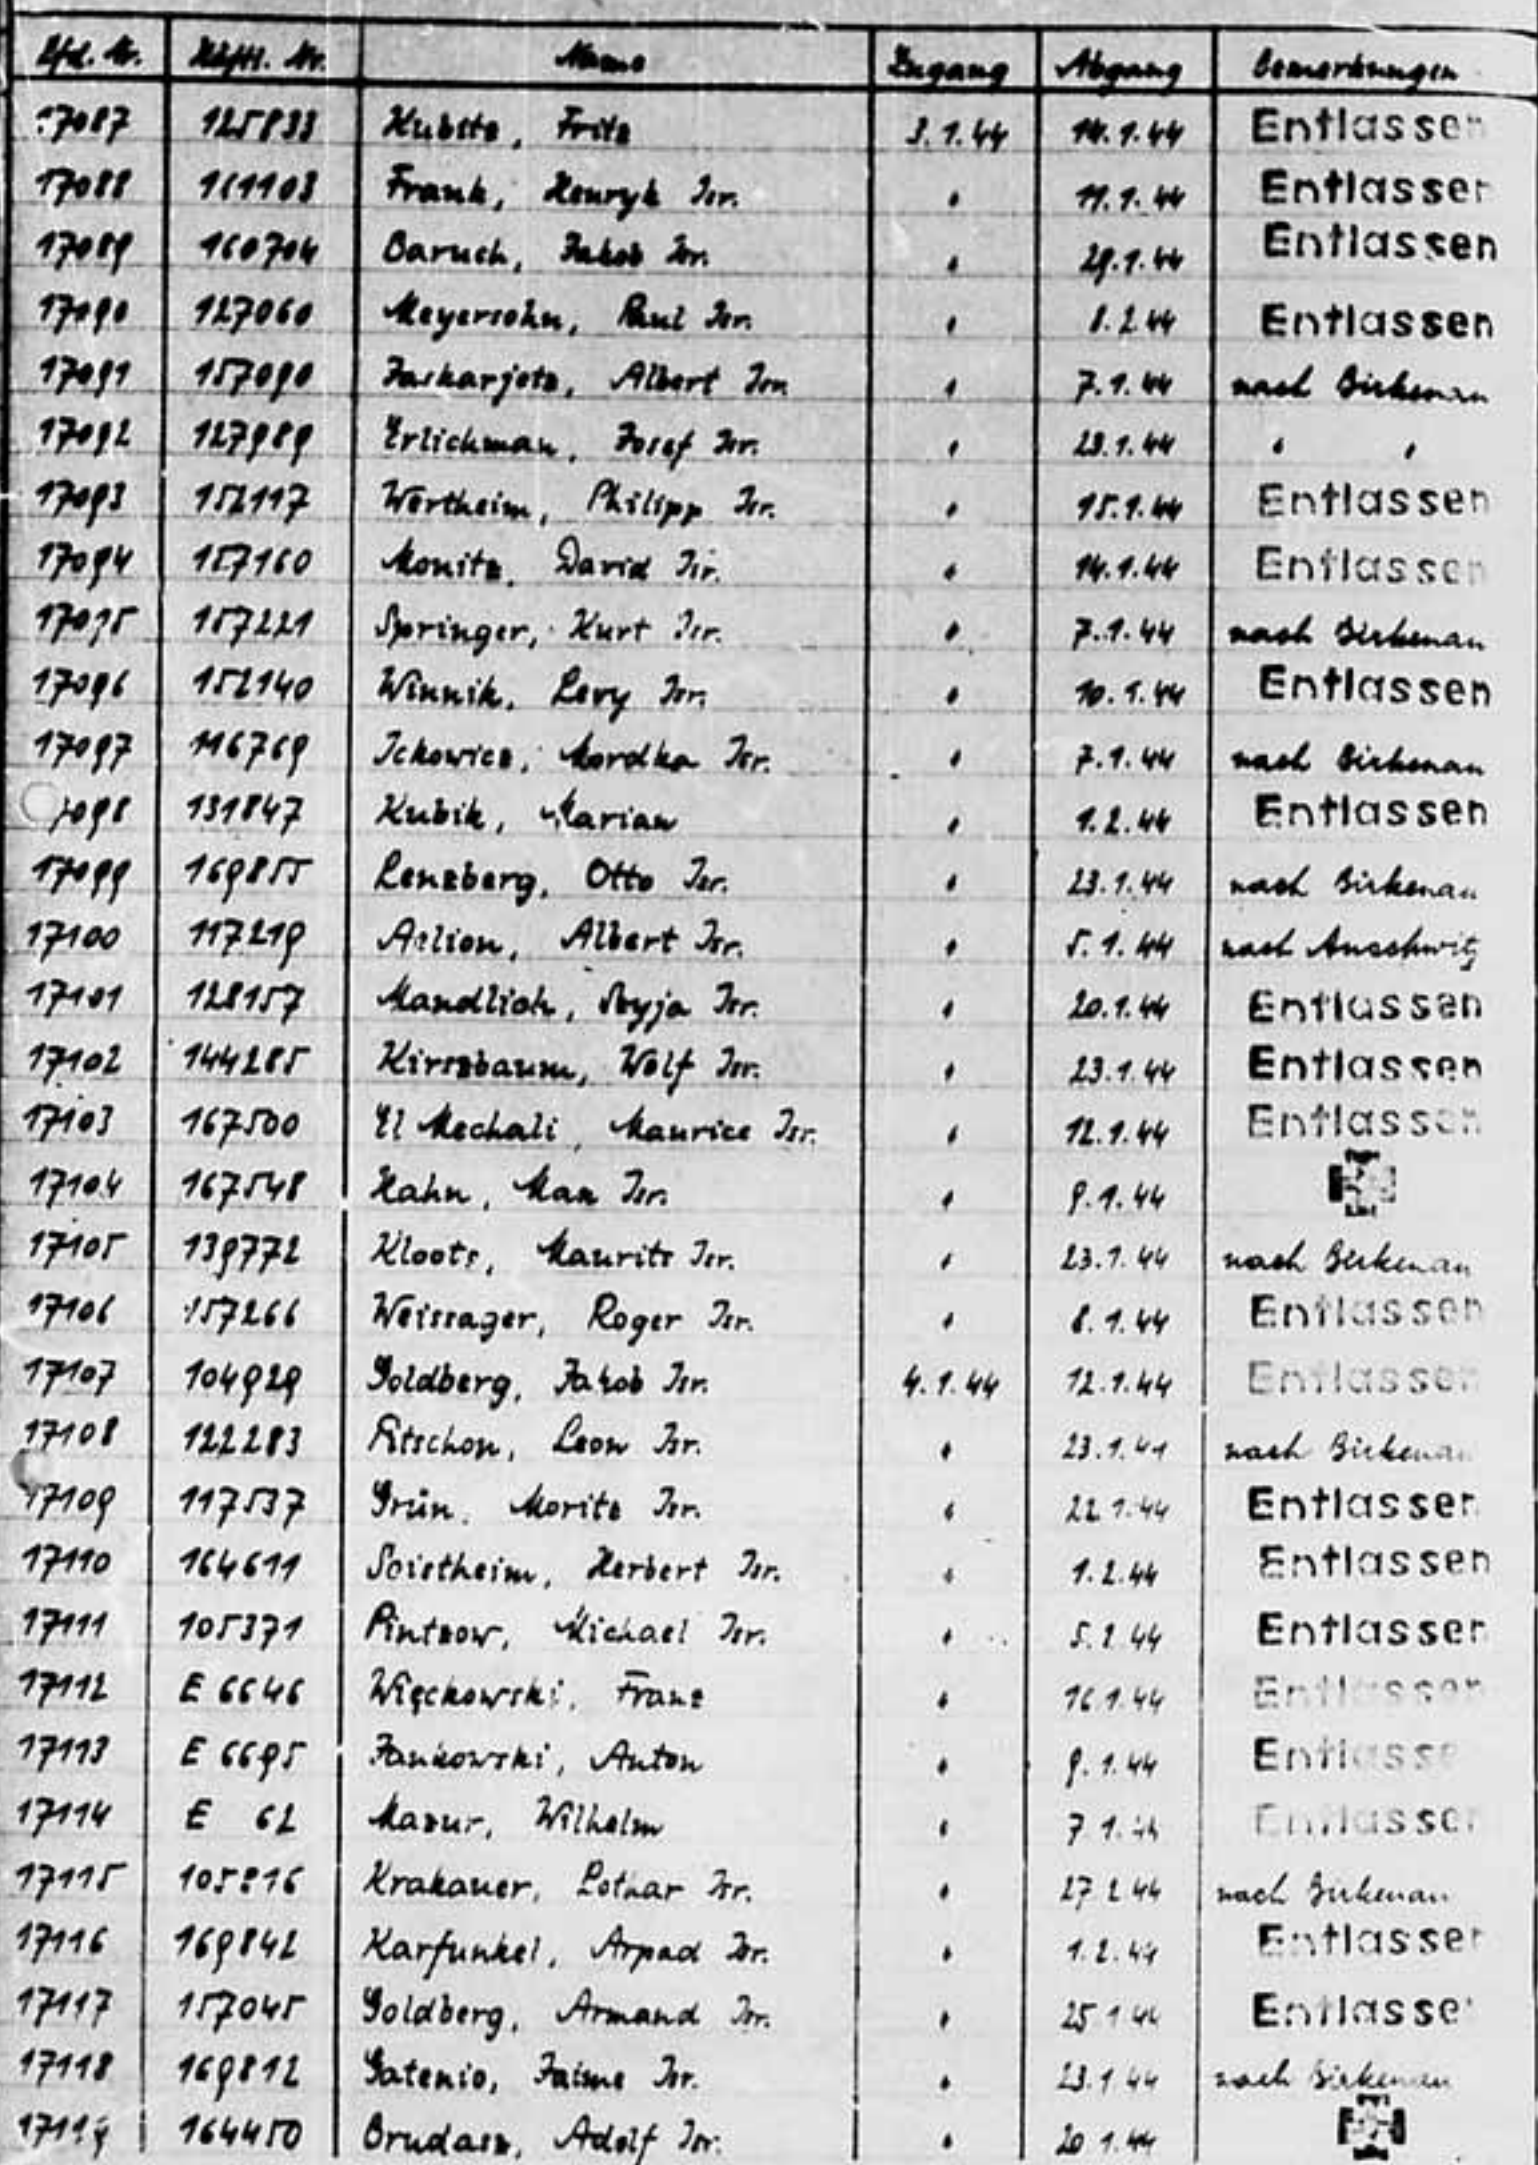 Lfd. Nr. Häftl. Nr. Name Zugang Abgang Bemerkungen
17087 125833 Kubitz, Fritz 3.1.44 14.1.44 Entlassen
17088 161103 Frank, Henryk Isr. " 11.1.44 Entlassen
17089 160704 Baruch, Jakob Isr. " 29.1.44 Entlassen
17090 127060 Meyersohn, Paul Isr. " 1.2.44 Entlassen
17091 157090 Jaskarjetz, Albert Isr. " 7.1.44 nach Birkenau
17092 127989 Erlichman, Josef Isr. " 23.1.44 " "
17093 152117 Wertheim, Philipp Isr. " 15.1.44 Entlassen
17094 157160 Monitz, David Isr. " 14.1.44 Entlassen
17095 157221 Springer, Kurt Isr. " 7.1.44 nach Birkenau
17096 152140 Winnik, Levy Isr. " 10.1.44 Entlassen
17097 116769 Ickowicz, Mordka Isr. " 7.1.44 nach Birkenau
17098 131847 Kubik, Marian " 1.2.44 Entlassen
17099 169855 Lenzberg, Otto Isr. " 23.1.44 nach Birkenau
17100 117219 Aelion, Albert Isr. " 5.1.44 nach Auschwitz
17101 128157 Mandlich, Isr. " 20.1.44 Entlassen
17102 144285 Kirszbaum, Wolf Isr. " 23.1.44 Entlassen
17103 167500 El Mechali, Maurice Isr. " 12.1.44 Entlassen
17104 167548 Hahn, Max Isr. " 9.1.44
17105 139772 Kloots, Maurits Isr. " 23.1.44 nach Birkenau
17106 157266 Weissager, Roger Isr. " 8.1.44 Entlassen
17107 104929 Goldberg, Jakob Isr. 4.1.44 12.1.44 Entlassen
17108 122283 Pitschon, Leon Isr. " 23.1.44 nach Birkenau
17109 117537 Grün, Moritz Isr. " 22.1.44 Entlassen
17110 164611 Soistheim, Herbert Isr. " 1.2.44 Entlassen
17111 105371 Pintzow, Michael Isr. " 5.2.44 Entlassen
17112 E 6646 Więckowski, Franz " 16.1.44 Entlassen
17113 E 6695 Jankowski, Anton " 9.1.44 Entlassen
17114 E 62 Mazur, Wilhelm " 7.1.44 Entlassen
17115 105816 Krakauer, Lothar Isr. " 27.2.44 nach Birkenau
17116 169842 Karfunkel, Arpad Isr. " 1.2.44 Entlassen
17117 157045 Goldberg, Armand Isr. " 25.1.44 Entlassen
17118 169812 Gatenio, Jaime Isr. " 23.1.44 nach Birkenau
17119 164450 Brudasz, Adolf Isr. " 20.1.44